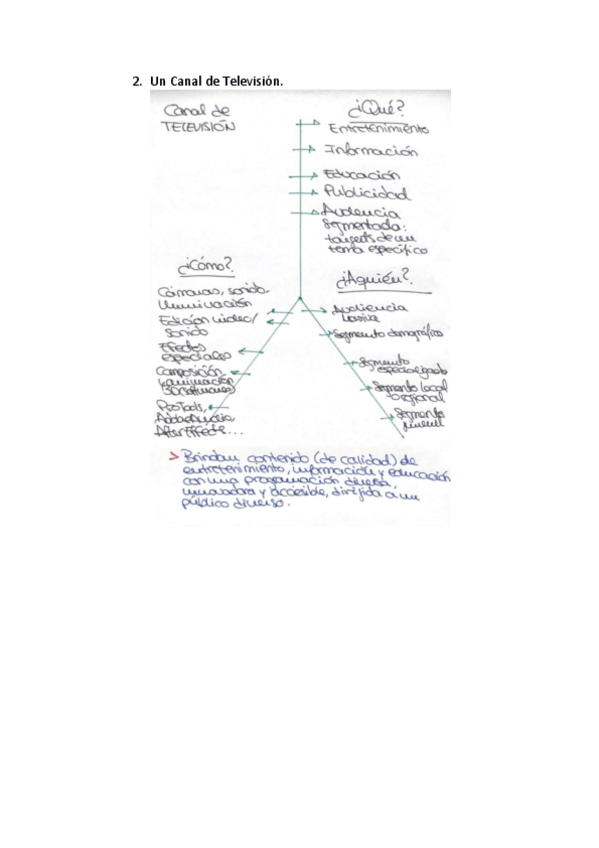 2. Un Canal de Televisión.
Canal de
TELEVISIÓN
¿Qué?
Entretenimiento
Información
Educación
Publicidad
Audiencia
Segmentada:
targets de un
tema específico
¿Cómo?
Cámaras, sonido,
iluminación
Edición video/
sonido
Efectos
especiales
Composición
y animación
ProTools,
After Effects...
¿A quién?
Audiencia
Masiva
Segmento demográfico
Segmento
especializado
Segmento local
regional
Segmento
juvenil
> Brindan contenido (de calidad) de
entretenimiento, información y educación
con una programación diversa,
innovadora y accesible, dirigida a un
público diverso.